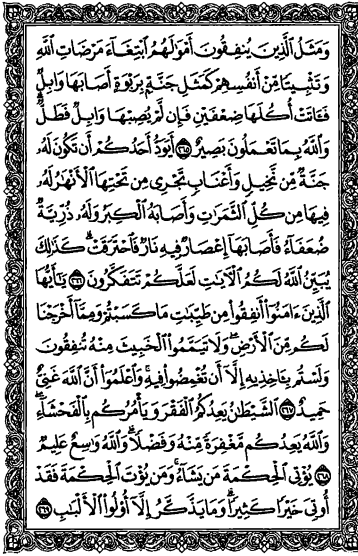 وَمَثَلُ ٱلَّذِينَ يُنفِقُونَ أَمْوَٰلَهُمُ ٱبْتِغَآءَ مَرْضَاتِ ٱللَّهِ
وَتَثْبِيتًا مِّنْ أَنفُسِهِمْ كَمَثَلِ جَنَّةٍۭ بِرَبْوَةٍ أَصَابَهَا وَابِلٌ
فَـَٔاتَتْ أُكُلَهَا ضِعْفَيْنِ فَإِن لَّمْ يُصِبْهَا وَابِلٌ فَطَلٌّ
وَٱللَّهُ بِمَا تَعْمَلُونَ بَصِيرٌ ٢٦٥ أَيَوَدُّ أَحَدُكُمْ أَن تَكُونَ لَهُۥ
جَنَّةٌ مِّن نَّخِيلٍ وَأَعْنَابٍ تَجْرِى مِن تَحْتِهَا ٱلْأَنْهَٰرُ لَهُۥ
فِيهَا مِن كُلِّ ٱلثَّمَرَٰتِ وَأَصَابَهُ ٱلْكِبَرُ وَلَهُۥ ذُرِّيَّةٌ
ضُعَفَآءُ فَأَصَابَهَآ إِعْصَارٌ فِيهِ نَارٌ فَٱحْتَرَقَتْ ۗ كَذَٰلِكَ
يُبَيِّنُ ٱللَّهُ لَكُمُ ٱلْـَٔايَٰتِ لَعَلَّكُمْ تَتَفَكَّرُونَ ٢٦٦ يَٰٓأَيُّهَا
ٱلَّذِينَ ءَامَنُوٓا۟ أَنفِقُوا۟ مِن طَيِّبَٰتِ مَا كَسَبْتُمْ وَمِمَّآ أَخْرَجْنَا
لَكُم مِّنَ ٱلْأَرْضِ ۖ وَلَا تَيَمَّمُوا۟ ٱلْخَبِيثَ مِنْهُ تُنفِقُونَ
وَلَسْتُم بِـَٔاخِذِيهِ إِلَّآ أَن تُغْمِضُوا۟ فِيهِ ۚ وَٱعْلَمُوٓا۟ أَنَّ ٱللَّهَ غَنِىٌّ
حَمِيدٌ ٢٦٧ ٱلشَّيْطَٰنُ يَعِدُكُمُ ٱلْفَقْرَ وَيَأْمُرُكُم بِٱلْفَحْشَآءِ ۖ
وَٱللَّهُ يَعِدُكُم مَّغْفِرَةً مِّنْهُ وَفَضْلًا ۗ وَٱللَّهُ وَٰسِعٌ عَلِيمٌ ٢٦٨
يُؤْتِى ٱلْحِكْمَةَ مَن يَشَآءُ ۚ وَمَن يُؤْتَ ٱلْحِكْمَةَ فَقَدْ
أُوتِىَ خَيْرًا كَثِيرًا ۗ وَمَا يَذَّكَّرُ إِلَّآ أُو۟لُوا۟ ٱلْأَلْبَٰبِ ٢٦٩